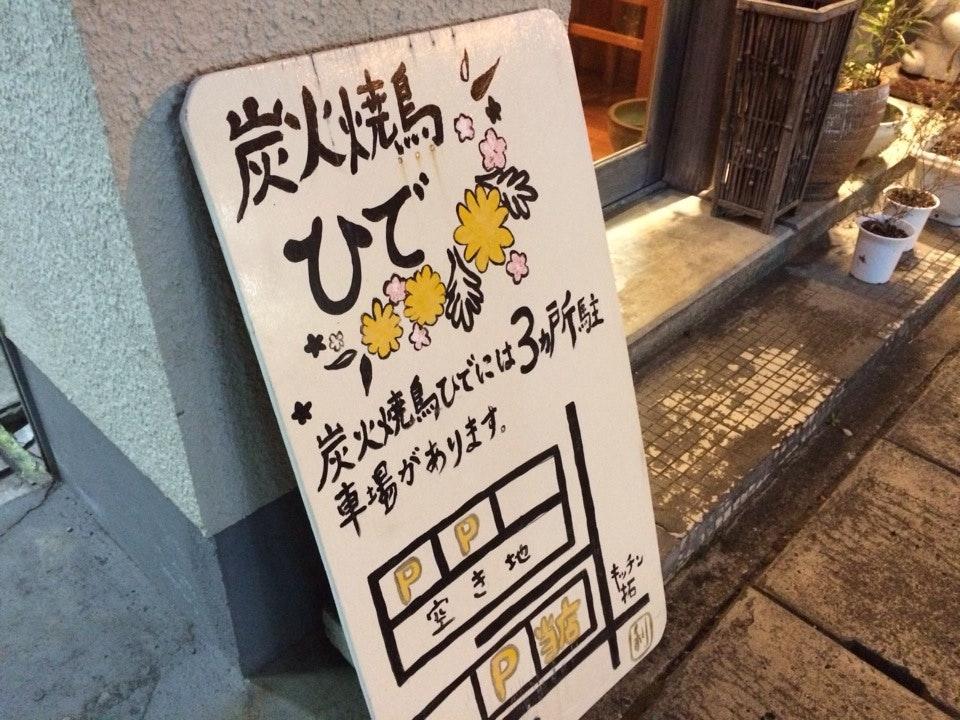 炭火焼鳥
ひで
炭火焼鳥ひでには3ヵ所駐
車場があります。
P
P
空き地
キッチン
拓
P
当店
利